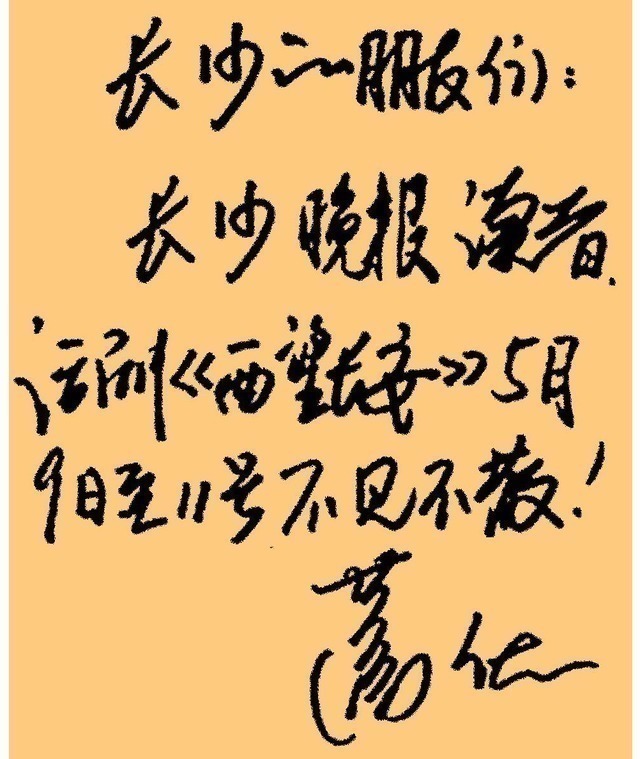 长沙的朋友们：
长沙晚报读者、
话剧《西望长安》5月
9日至11号不见不散！
葛优